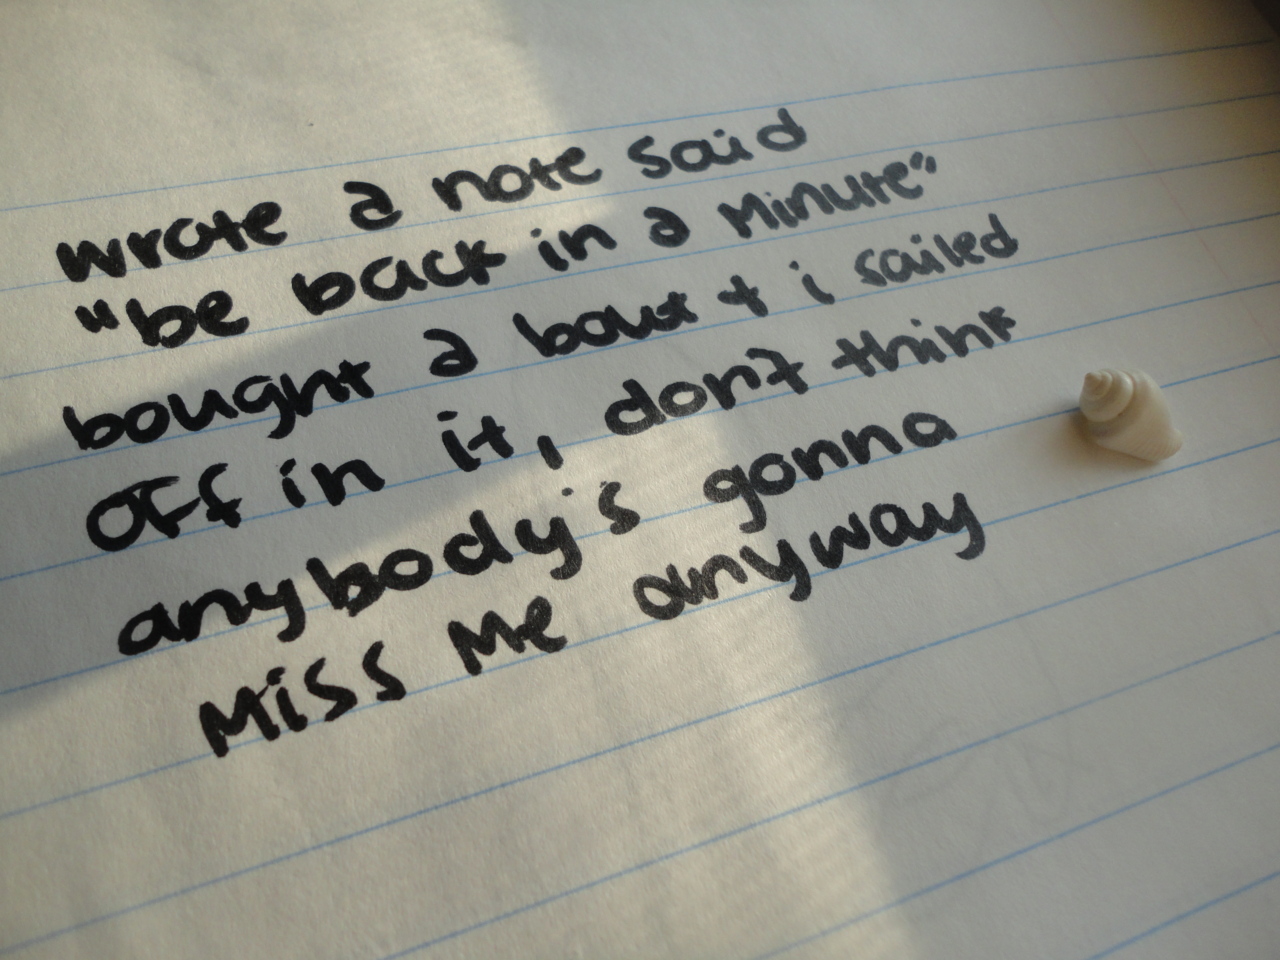 wrote a note said
"be back in a minute"
bought a boat + i sailed
off in it, don't think
anybody's gonna
miss me anyway